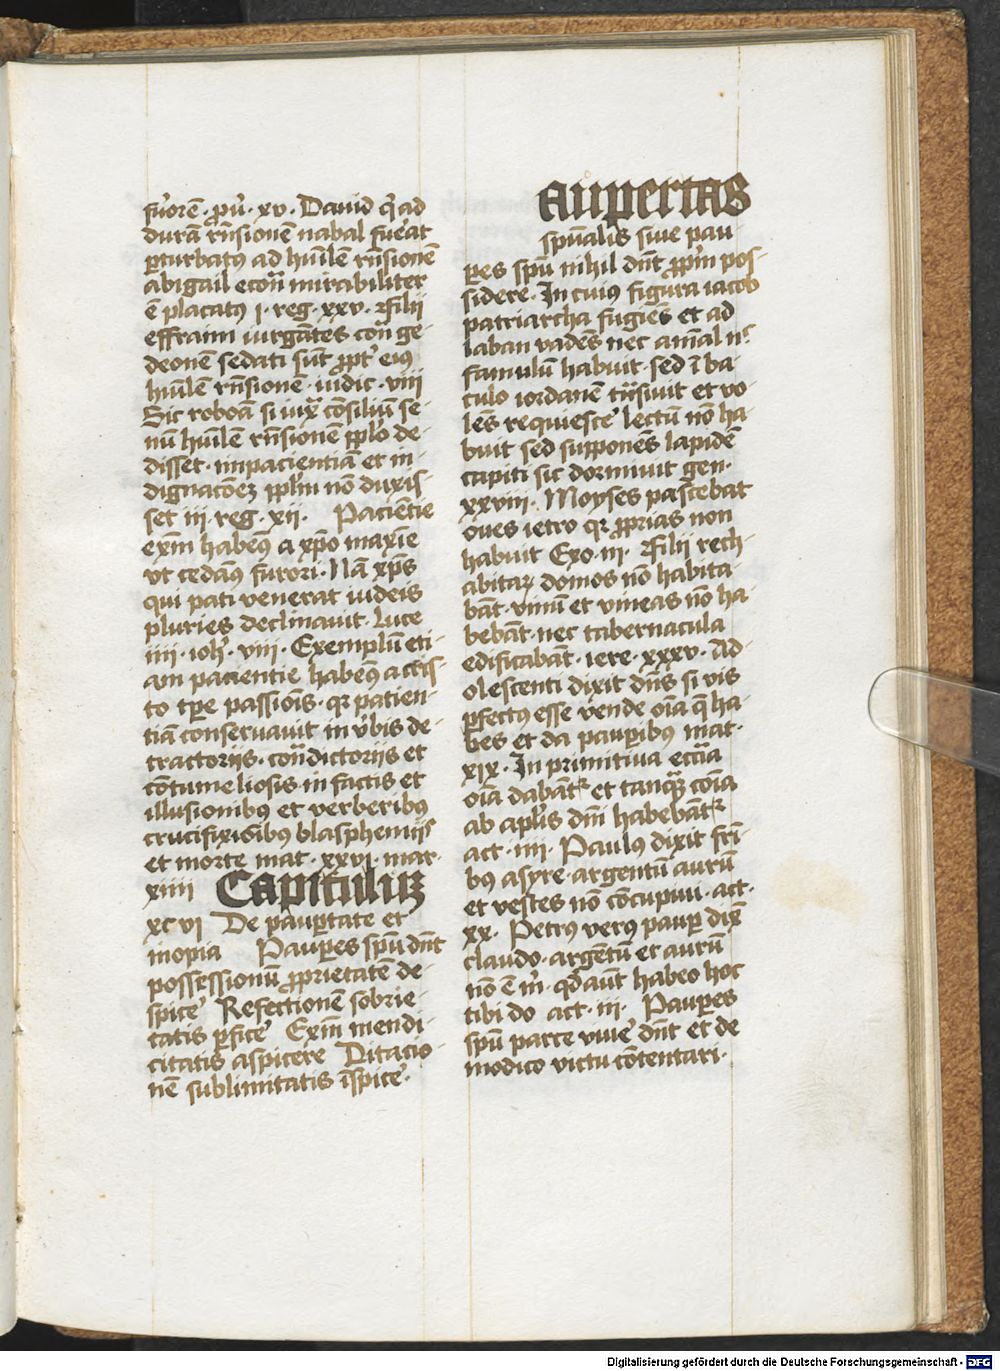 furorē · pu̇ · xv · Dauid q̇ ad
durā rn̄sionē nabal fuėat
ꝑturbatꝰ ad hūilē rn̄sionē
abigail econ̄ mirabiliter
ē placatꝰ j · reg · xxv · Filii
effraim iurgātes con̄ ge-
deonē sedati sūt ꝓpt̉ eiꝰ
hūilē rn̄sionē · iudic · viii
Sic roboā si iuxͣ cōsiliū se-
nū hūilē rn̄sionē pplo de-
disset · impacientiā et in-
dignacōeꝫ pplm̄ nō duxis-
set iii · reg · xii · Paciētie
exm̄ habeꝰ a xp̄o maxīe
vt cedāꝰ furori · Nā xp̄s
qui pati venerat iudeis
pluries declinauit · Luce
iiii · ioh̄ · viii · Exemplū eti-
am pacientie habeꝰ a cͥs-
to tp̄e passiōis · qꝛ patien-
tiā conseruauit in v̉bis de-
tractoriis · con̄dictoriis et
cōtumeliosis in factis et
illusionibꝰ et verberibꝰ
crucifixiōibꝰ blasphemiis
et morte mat · xxvi · mar ·
xiiii Capituluꝫ
xcvi De pauꝑtate et
inopia Pauꝑes spū dn̄t
possessionū ꝓprietatē de-
spice̓ Refectionē sobrie-
tatis ꝑfice̓ Exm̄ mendi-
citatis aspicere Ditacio-
nē sublimitatis īspice̓ ·
Aupertas
spūalis siue pau-
ꝑes spū nihil dn̄t ꝓpͥm pos-
sidere · In cuius figura iacob
patriarcha fugiēs et ad
laban vadēs nec aīal nͨ
famulū habuit · sed ī ba-
culo iordanē tͣnsiuit et vo-
lēs requiesce̓ lectū nō ha-
buit sed supponēs lapidē
capiti sic dormiuit gen ·
xxviii · Moyses pascebat
oues ietro qꝛ ꝓprias non
habuit Exo · iii · Filii rech-
abitaꝝ domos nō habita-
bāt · vinū et vineas nō ha-
bebāt · nec tabernacula
edificabāt · iere · xxxv · Ad-
olescenti dixit dn̄s si vis
ꝑfectꝰ esse vende oīa q̄ ha-
bes et da pauꝑibꝰ mat ·
xix · In primitiua ecc̄ia
oīa dabātᷣ et tanquā cōia
ab aplis dm̄ habebātᷣ
act · iiii · Paulꝰ dixit frī-
bꝰ asye · argentū aurū
et vestes nō cōcupiui · act ·
xx · Petrꝰ verꝰ pauꝑ dix̄
claudo · argētū et aurū
nō ē m̉ · qd̄ aūt habeo hoc
tibi do act · iii · Pauꝑes
spū parce viue̓ dn̄t et de
modico victu cōtentari ·
Digitalisierung gefördert durch die Deutsche Forschungsgemeinschaft - DFG